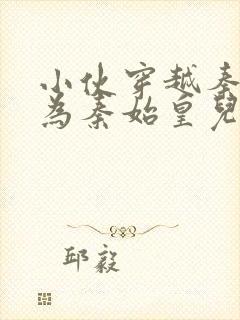 小伙穿越秦
為秦始皇兒
邱毅